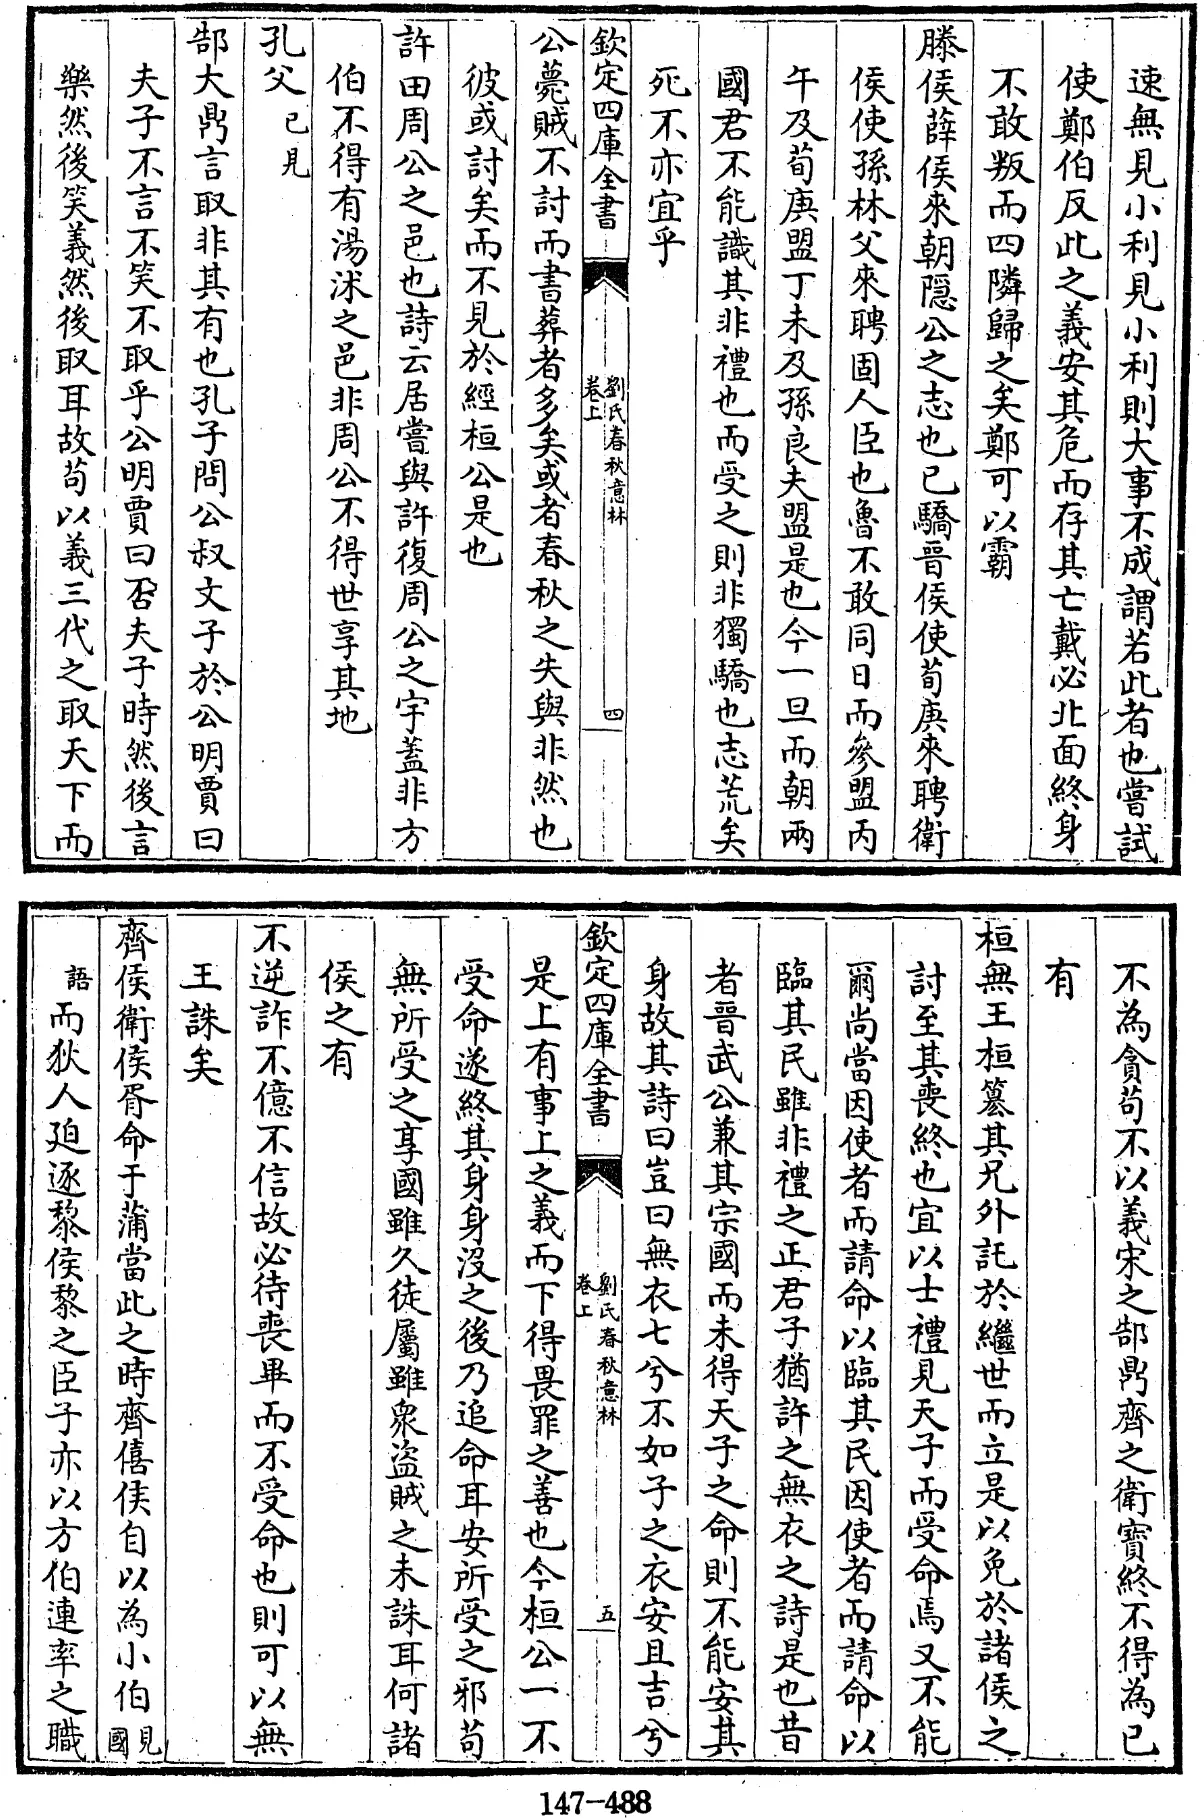 速無見小利見小利則大事不成謂若此者也嘗試
使鄭伯反此之義安其危而存其亡戴必北面終身
不敢叛而四隣歸之矣鄭可以霸
滕侯薛侯來朝隠公之志也已驕晉侯使荀庚來聘衛
侯使孫林父來聘固人臣也魯不敢同日而參盟丙
午及荀庚盟丁未及孫良夫盟是也今一旦而朝兩
國君不能識其非禮也而受之則非獨驕也志荒矣
死不亦宜乎
欽定四庫全書
劉氏春秋意林
卷上
四
公薨賊不討而書葬者多矣或者春秋之失與非然也
彼或討矣而不見於經桓公是也
許田周公之邑也詩云居嘗與許復周公之宇蓋非方
伯不得有湯沭之邑非周公不得世享其地
孔父已見
郜大鼎言取非其有也孔子問公叔文子於公明賈曰
夫子不言不笑不取乎公明賈曰否夫子時然後言
樂然後笑義然後取耳故苟以義三代之取天下而
不為貪苟不以義宋之郜鼎齊之衛寶終不得為已
有
桓無王桓簒其兄外託於繼世而立是以免於諸侯之
討至其喪終也宜以士禮見天子而受命焉又不能
爾尚當因使者而請命以臨其民因使者而請命以
臨其民雖非禮之正君子猶許之無衣之詩是也昔
者晉武公兼其宗國而未得天子之命則不能安其
身故其詩曰豈曰無衣七兮不如子之衣安且吉兮
欽定四庫全書
劉氏春秋意林
卷上
五
是上有事上之義而下得畏罪之善也今桓公一不
受命遂終其身身沒之後乃追命耳安所受之邪苟
無所受之享國雖久徒屬雖衆盗賊之未誅耳何諸
侯之有
不逆詐不億不信故必待喪畢而不受命也則可以無
王誅矣
齊侯衛侯胥命于蒲當此之時齊僖侯自以為小伯見國
語而狄人廹逐黎侯黎之臣子亦以方伯連率之職
147-488